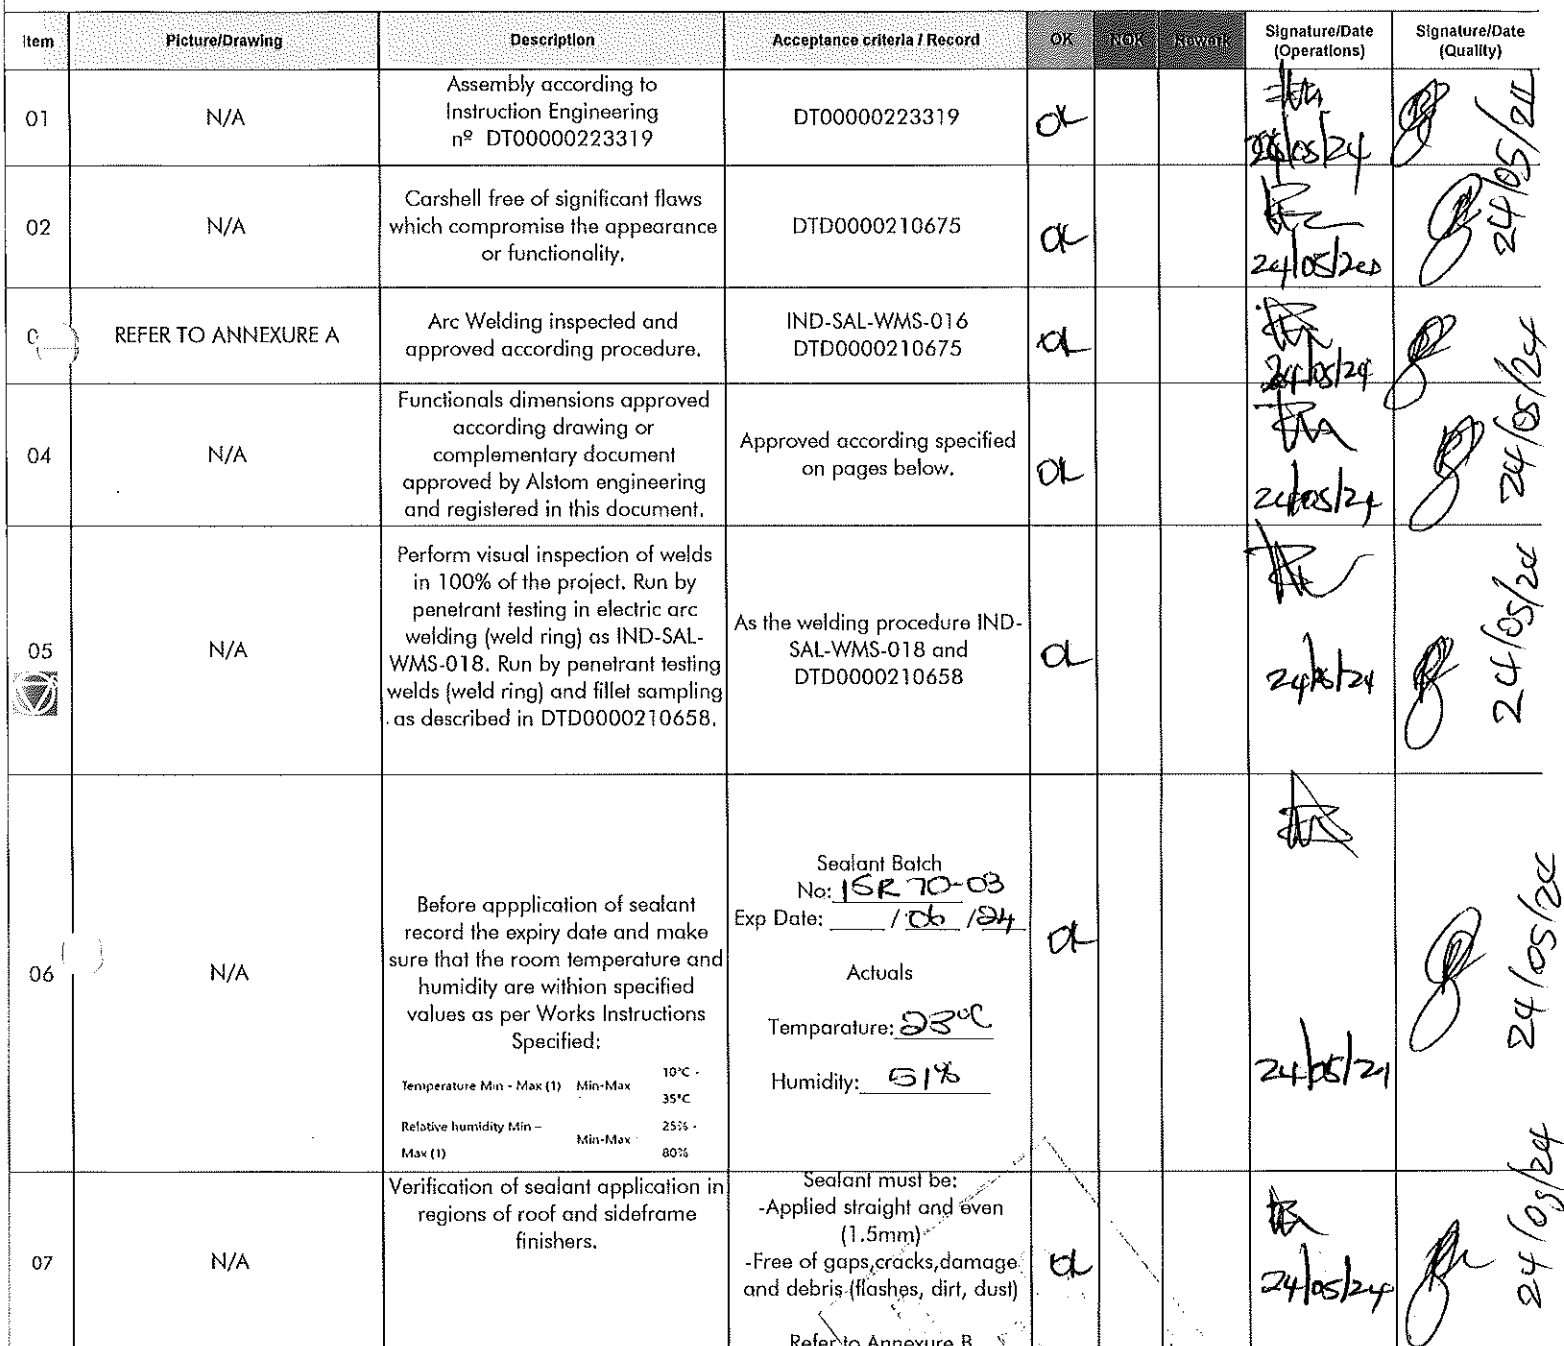 Item Picture/Drawing Description Acceptance criteria / Record OK NOK Rework Signature/Date (Operations) Signature/Date (Quality)
01 N/A
Assembly according to
Instruction Engineering
nº DT00000223319
DT00000223319
OK
24/05/24
24/05/24
02 N/A
Carshell free of significant flaws
which compromise the appearance
or functionality.
DTD0000210675
OK
24/05/24
REFER TO ANNEXURE A
Arc Welding inspected and
approved according procedure.
IND-SAL-WMS-016
DTD0000210675
OK
24/05/24
24/05/24
04 N/A
Functionals dimensions approved
according drawing or
complementary document
approved by Alstom engineering
and registered in this document.
Approved according specified
on pages below.
OK
24/05/24
24/05/24
05 N/A
Perform visual inspection of welds
in 100% of the project. Run by
penetrant testing in electric arc
welding (weld ring) as IND-SAL-
WMS-018. Run by penetrant testing
welds (weld ring) and fillet sampling
as described in DTD0000210658.
As the welding procedure IND-
SAL-WMS-018 and
DTD0000210658
OK
24/05/24
24/05/24
06 N/A
Before appplication of sealant
record the expiry date and make
sure that the room temperature and
humidity are withion specified
values as per Works Instructions
Specified:
Temperature Min - Max (1) Min-Max 10°C -
35°C
Relative humidity Min –
Max (1) Min-Max 25% -
80%
Sealant Batch
No: ISR 70-03
Exp Date: / 06 / 24
Actuals
Temparature: 23°C
Humidity: 51%
OK
24/05/24
24/05/24
07 N/A
Verification of sealant application in
regions of roof and sideframe
finishers.
Sealant must be:
-Applied straight and even
(1.5mm)
-Free of gaps,cracks,damage
and debris (flashes, dirt, dust)
Refer to Annexure B
OK
24/05/24
24/05/24